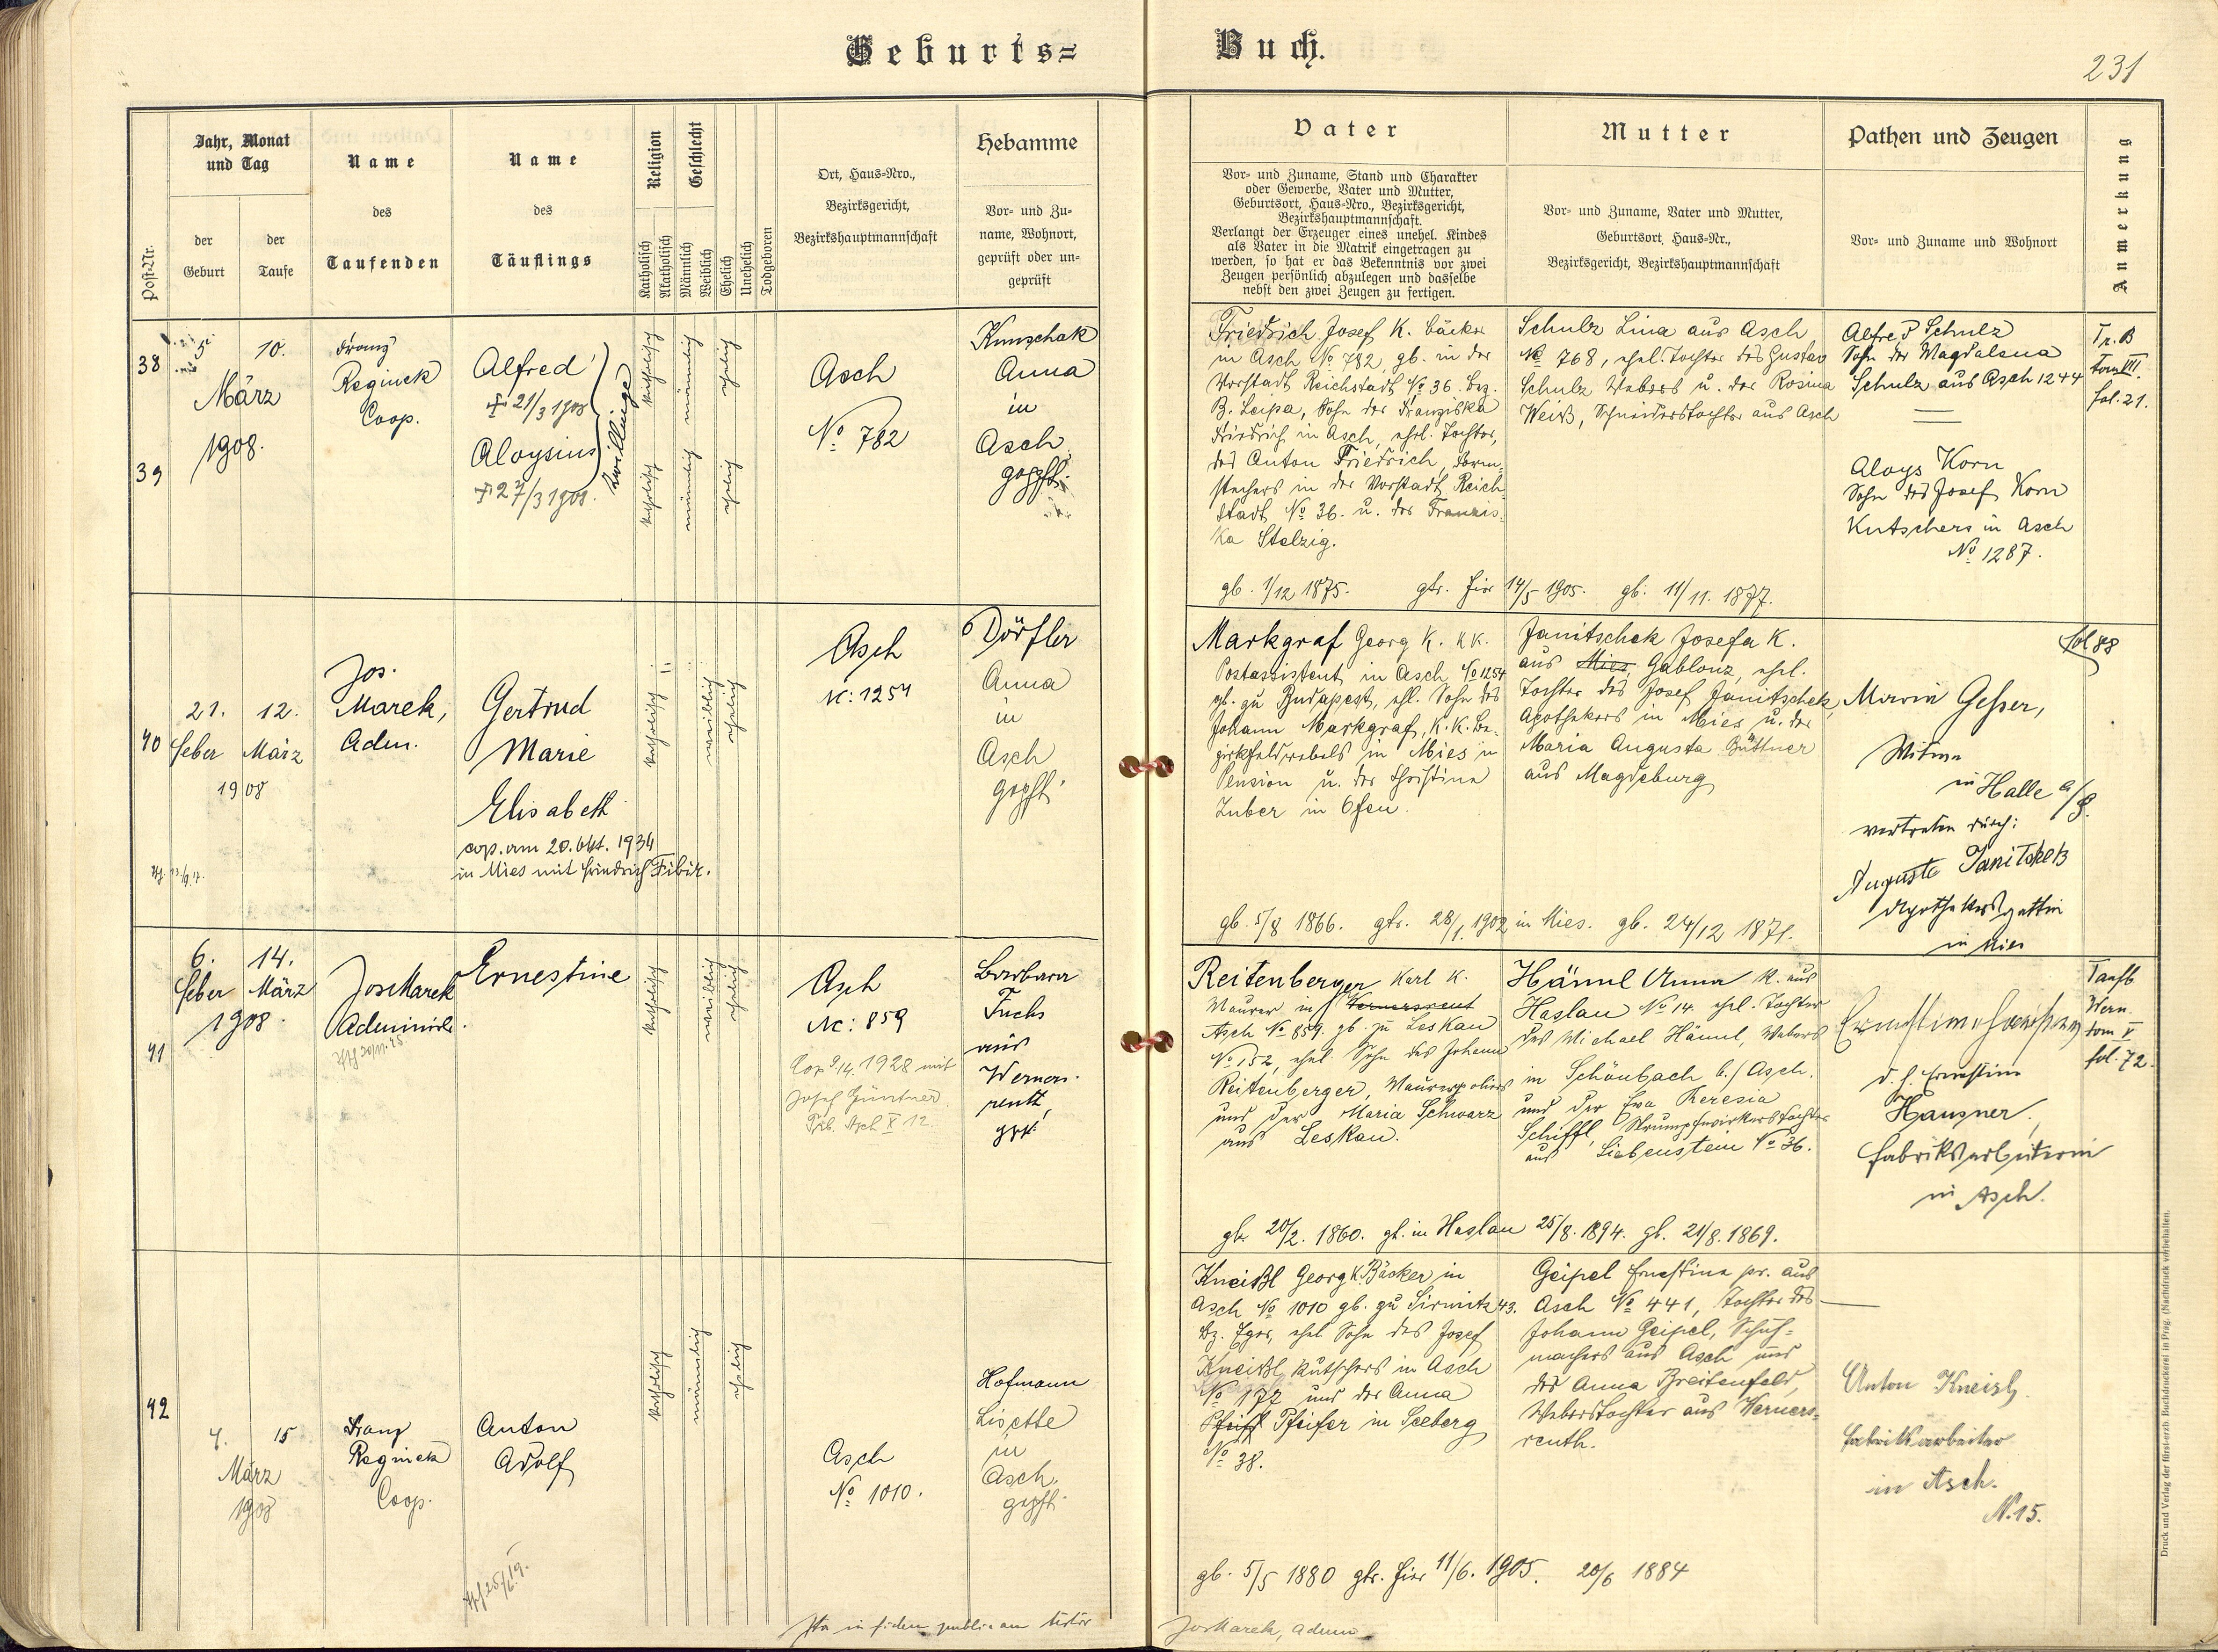 Geburts=
Buch.
231
Post-Nr.
Jahr, Monat
und Tag
der
Geburt
der
Taufe
Name
des
Taufenden
Name
des
Täuflings
Religion
Katholisch
Akatholisch
Geschlecht
Männlich
Weiblich
Ehelich
Unehelich
Todgeboren
Ort, Haus-Nro.,
Bezirksgericht,
Bezirkshauptmannschaft
Hebamme
Vor- und Zu-
name, Wohnort,
geprüft oder un-
geprüft
Vater
Vor- und Zuname, Stand und Charakter
oder Gewerbe, Vater und Mutter,
Geburtsort, Haus-Nro., Bezirksgericht,
Bezirkshauptmannschaft.
Verlangt der Erzeuger eines unehel. Kindes
als Vater in die Matrik eingetragen zu
werden, so hat er das Bekenntnis vor zwei
Zeugen persönlich abzulegen und dasselbe
nebst den zwei Zeugen zu fertigen.
Mutter
Vor- und Zuname, Vater und Mutter,
Geburtsort, Haus-Nr.,
Bezirksgericht, Bezirkshauptmannschaft
Pathen und Zeugen
Vor- und Zuname und Wohnort
Anmerkung
38
39
5
10.
März
1908.
Franz
Reginek
Coop.
Alfred
† 21/3 1908
Aloysius
† 27/3 1908.
Zwillinge
katholisch
männlich
ehelich
katholisch
männlich
ehelich
Asch
No 782
Kunschak
Anna
in
Asch
geprft.
Friedrich Josef k. Bäcker
in Asch No 782, gb. in der
Vorstadt Reichstadt No 36. Bez.
B. Leipa, Sohn der Franziska
Friedrich in Asch, ehel. Tochter,
des Anton Friedrich, Form-
stechers in der Vorstadt Reich-
stadt No 36. u. der Franzis-
ka Stelzig.
gb. 1/12 1875. gtr. hier 14/5 1905. gb. 11/11. 1877.
Schulz Lina aus Asch
No 768, ehel. Tochter des Gustav
Schulz Webers u. der Rosina
Weiß, Schneiderstochter aus Asch
Alfred Schulz
Sohn der Magdalena
Schulz aus Asch 1244
Aloys Korn
Sohn des Josef Korn
Kutschers in Asch
No 1287.
Tr. B
Tom III.
fol. 21.
40
21. 12.
Feber März
1908
Jos.
Marek,
Adm.
Gertrud
Marie
Elisabeth
cop. am 20. Okt. 1934
in Mies mit Friedrich Fibir.
katholisch
weiblich
ehelich
Asch
Nc: 1254
Dörfler
Anna
in
Asch
geprft.
Markgraf Georg k. k.k.
Postassistent in Asch No 1254
gb. zu Budapest, ehl. Sohn des
Johann Markgraf, k. k. Be-
zirksfeldwebels in Mies in
Pension u. der Christina
Zuber in Ofen.
gb. 5/8 1866. gtr. 28/1. 1902 in Mies. gb. 24/12 1871.
Janitschek Josefa k.
aus Mies, Gablonz, ehel.
Tochter des Josef Janitschek,
Apothekers in Mies u. der
Maria Augusta Büttner
aus Magdeburg
fol 88
Maria Gesser,
Witwe
in Halle a/S.
vertreten durch:
Auguste Janitschek
Apothekersgattin
in Mies
41
6. 14.
Feber März
1908.
Jos Marek
Administr.
Ernestine
katholisch
weiblich
ehelich
Asch
Nc: 859
Cop 9./4. 1928 mit
Josef Güntner
Trb. Asch X 12.
Barbara
Fuchs
aus
Werners-
reuth,
gepr.
Reitenberger Karl k.
Maurer in Wernersreut
Asch No 859. gb. zu Leskau
No 152, ehel. Sohn des Johann
Reitenberger, Maurerpoliers
und der Maria Schwarz
aus Leskau.
gb. 20/2. 1860. gt. in Haslau 25/8. 1894. gb. 21/8. 1869.
Hännl Anna k. aus
Haslau No 14. ehel. Tochter
des Michael Hännl, Webers
in Schönbach b./Asch.
und der Eva Theresia
Schiffl, Strumpfwirkerstochter
aus Liebenstein No 36.
d. h. Ernestine
Hausner,
Fabriksarbeiterin
in Asch.
Taufb
Wern.
tom V
fol. 72.
42
4. 15
März
1908
Franz
Reginek
Coop.
Anton
Adolf
katholisch
männlich
ehelich
Asch
No 1010.
Hofmann
Lisette
in
Asch.
geprft.
Kneißl Georg k. Bäcker in
Asch No 1010 gb. zu Sirmitz 43.
Bz. Eger, ehel Sohn des Josef
Kneißl Kutschers in Asch
No 177 und der Anna
Pfeifer in Seeberg
No 38.
gb. 5/5 1880 gtr. hier 11/6. 1905. 20/6 1884
Geipel Ernestine pr. aus
Asch No 441, Tochter des
Johann Geipel, Schuh-
machers aus Asch und
der Anna Breitenfeld,
Weberstochter aus Werners-
reuth.
Anton Kneisl
Fabriksarbeiter
in Asch.
N. 15.
Ita in fidem publicam testor
Jos Marek, Adm.
Druck und Verlag der fürst-erzb. Buchdruckerei in Prag. (Nachdruck vorbehalten.